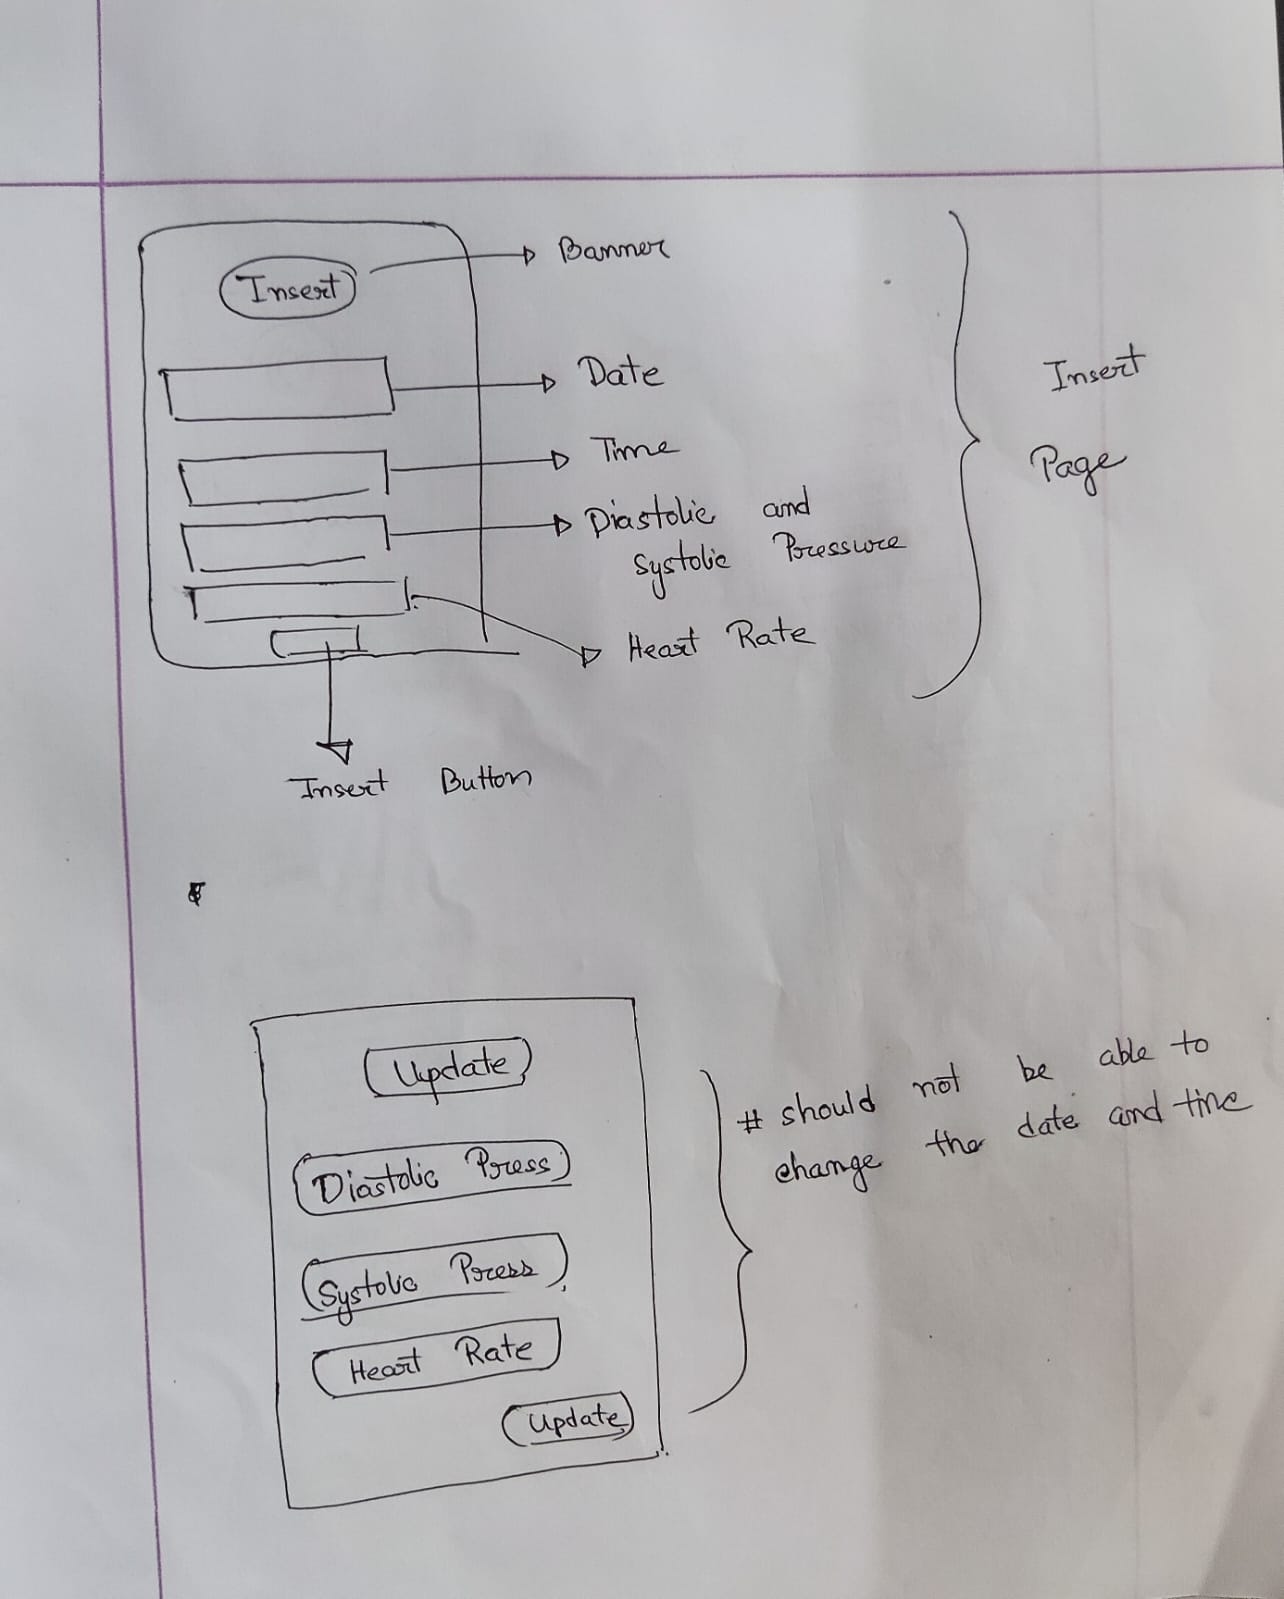 Insert
Banner
Date
Time
Diastolic and
Systolic Pressure
Heart Rate
Insert Button
Insert
Page
Update
Diastolic Press
Systolic Press
Heart Rate
Update
# should not be able to
change the date and time